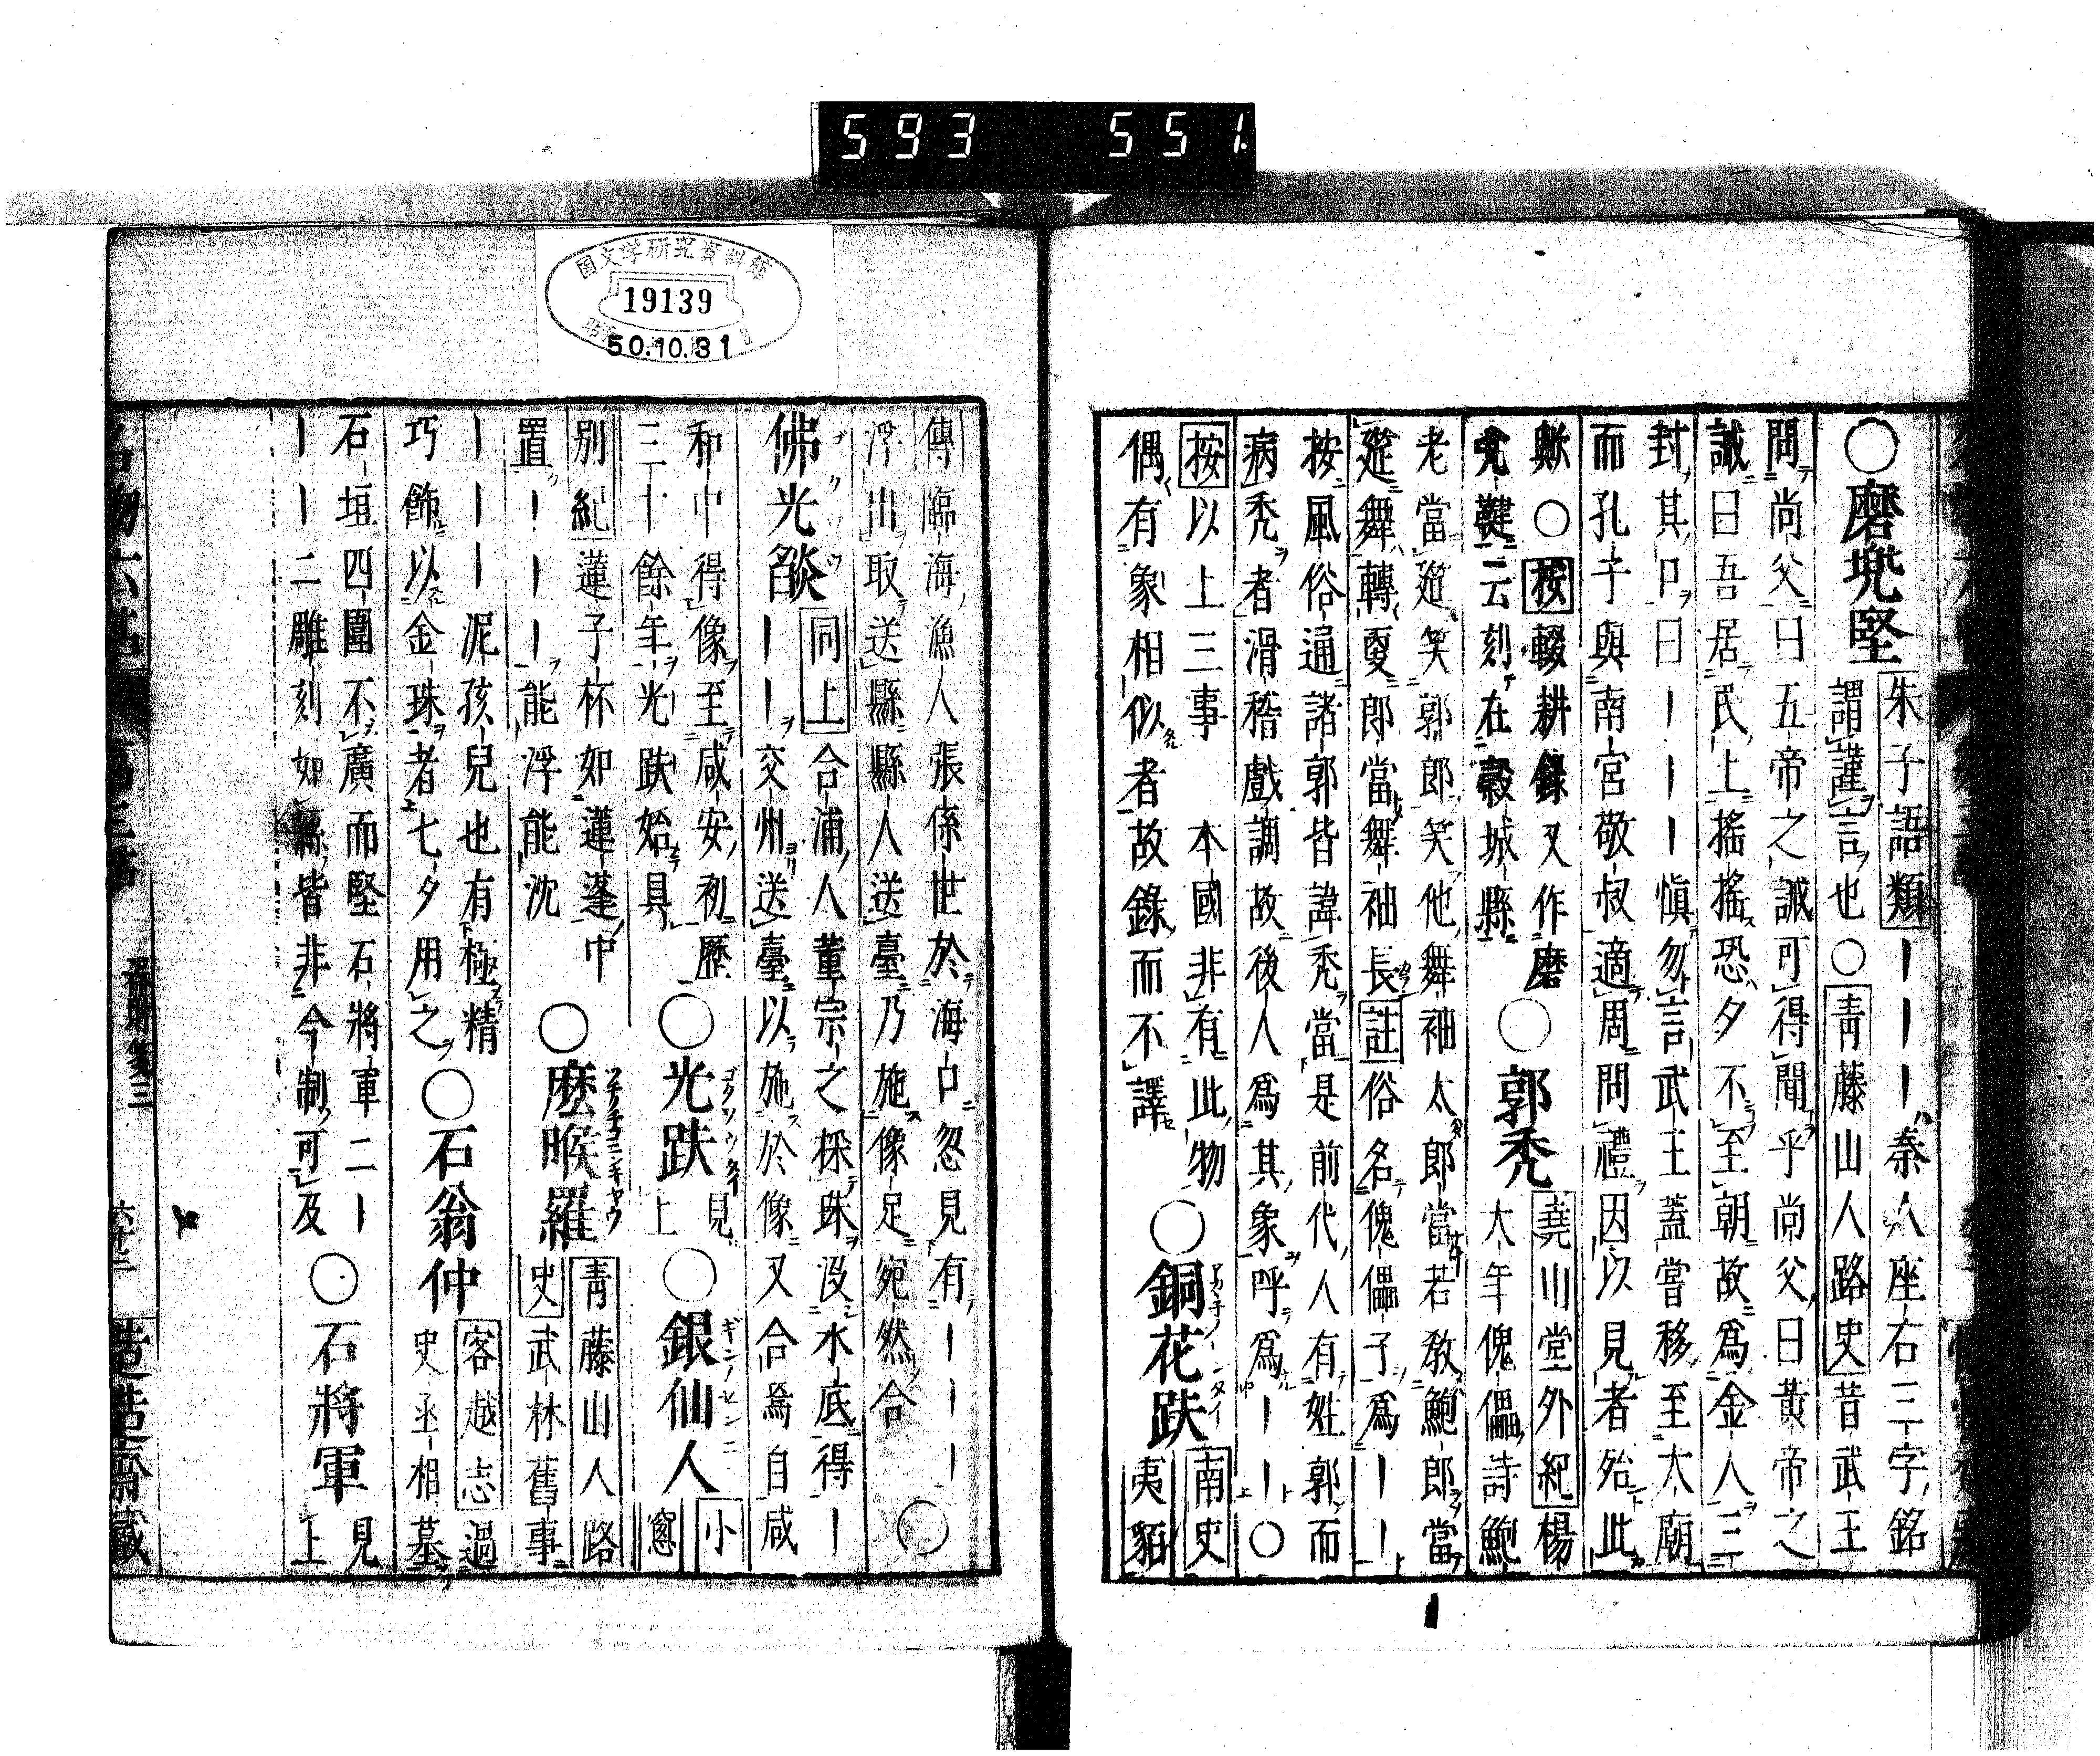 593 551
○磨兜堅
朱子語類｜｜｜ハ秦人座右三字ノ銘
謂謹言也○青藤山人路史昔武王
問尚父曰五帝之誡可得聞乎尚父曰黄帝之
誡曰吾居民上搖搖恐夕不至朝故爲金人三
封其口曰｜｜｜愼勿言武王蓋嘗移至太廟
而孔子與南宮敬叔適周問禮因以見者殆此
歟○按輟耕録又作磨
兜鞬云刻在穀城縣
○郭禿
堯山堂外紀楊
大年傀儡詩鮑
老當筵笑郭郎笑他舞袖太郎當若教鮑郎當
筵舞轉更郎當舞袖長註俗名傀儡子爲｜｜
按風俗通諸郭皆諱禿當是前代人有姓郭而
病禿者滑稽戲調故後人爲其象呼爲｜｜○
按以上三事　本國非有此物
偶有象相似者故錄而不譯
○銅花趺
南史
夷貊
傳臨海漁人張係世於海口忽見有｜｜｜
浮出取送縣縣人送臺乃施像足宛然合○
佛光燄
同上合浦人董宗之採珠沒水底得｜
｜｜交州送臺以施於像又合焉自咸
和中得像至咸安初歷
三十餘年光趺始具
○光趺見
上
○銀仙人
小
窻
別紀蓮子杯如蓮蓬中
置｜｜｜能浮能沈
○麽㬋羅
青藤山人路
史武林舊事
｜｜｜泥孩兒也有極精
巧飾以金珠者七夕用之
○石翁仲
客越志過
史丞相墓
石垣四圍不廣而堅石將軍二｜
｜｜二雕刻如皆非今制可及
○石將軍
見
上
造造齋藏
国文学研究資料館
19139
50.10.31